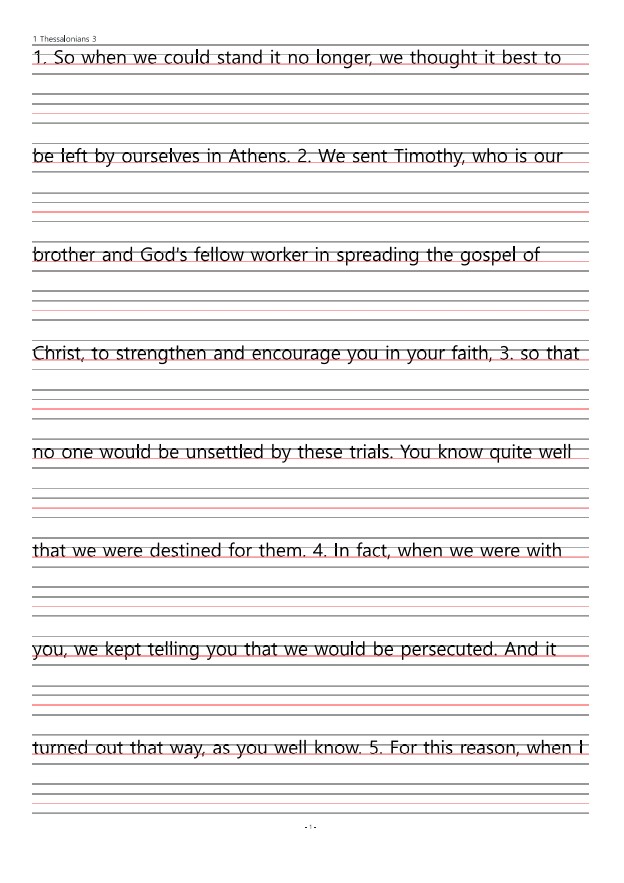 1 Thessalonians 3
1. So when we could stand it no longer, we thought it best to
be left by ourselves in Athens. 2. We sent Timothy, who is our
brother and God's fellow worker in spreading the gospel of
Christ, to strengthen and encourage you in your faith, 3. so that
no one would be unsettled by these trials. You know quite well
that we were destined for them. 4. In fact, when we were with
you, we kept telling you that we would be persecuted. And it
turned out that way, as you well know. 5. For this reason, when I
- 1 -